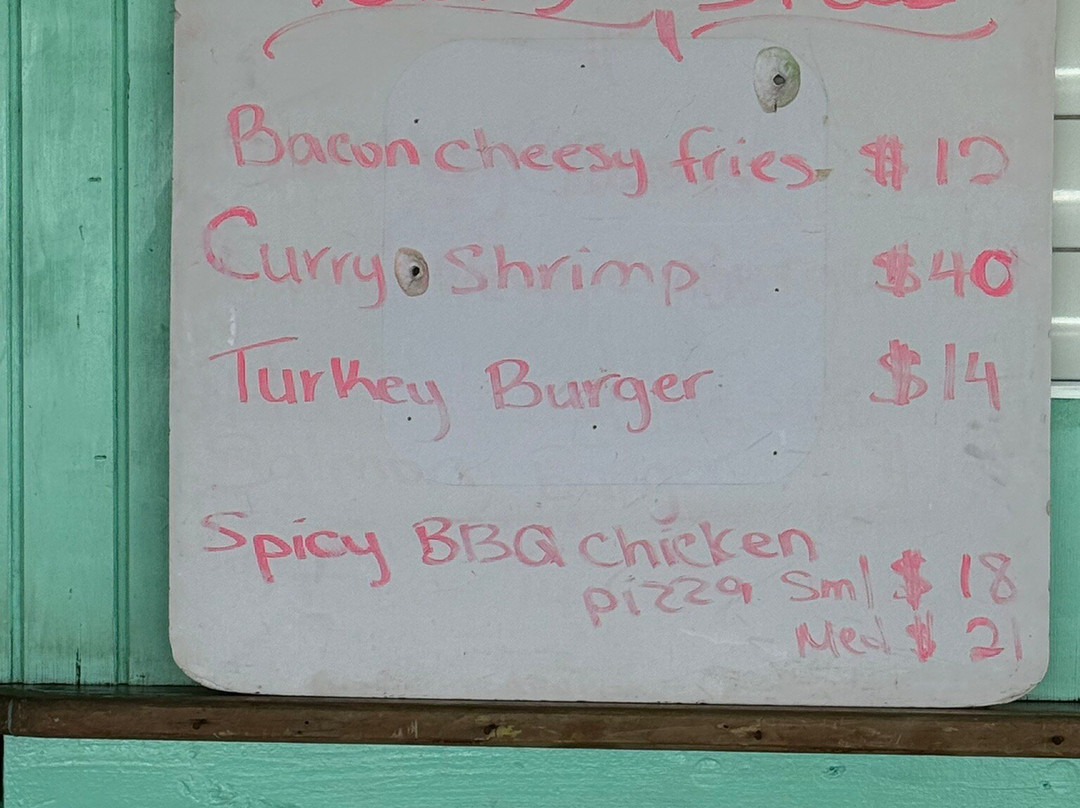 Bacon cheesy fries $12
Curry Shrimp $40
Turkey Burger $14
Spicy BBQ chicken
pizza Sml $18
Med $21